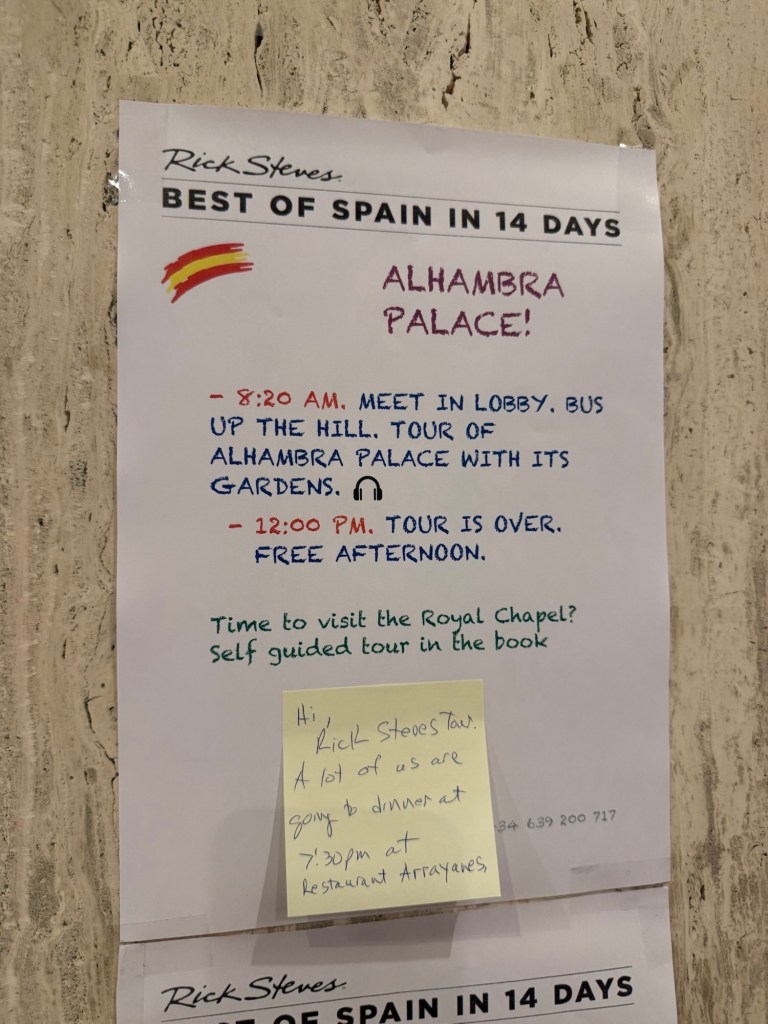 Rick Steves
BEST OF SPAIN IN 14 DAYS
ALHAMBRA
PALACE!
- 8:20 AM. MEET IN LOBBY. BUS
UP THE HILL. TOUR OF
ALHAMBRA PALACE WITH ITS
GARDENS.
- 12:00 PM. TOUR IS OVER.
FREE AFTERNOON.
Time to visit the Royal Chapel?
Self guided tour in the book
Hi,
Rick Steves Tour.
A lot of us are
going to dinner at
7:30pm at
Restaurant Arrayanes.
34 639 200 717
Rick Steves
BEST OF SPAIN IN 14 DAYS